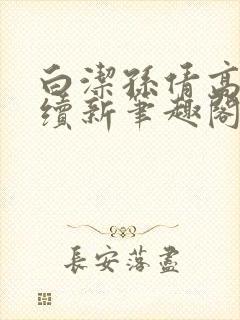 白潔孫倩高
續新筆趣閣
長安落盡